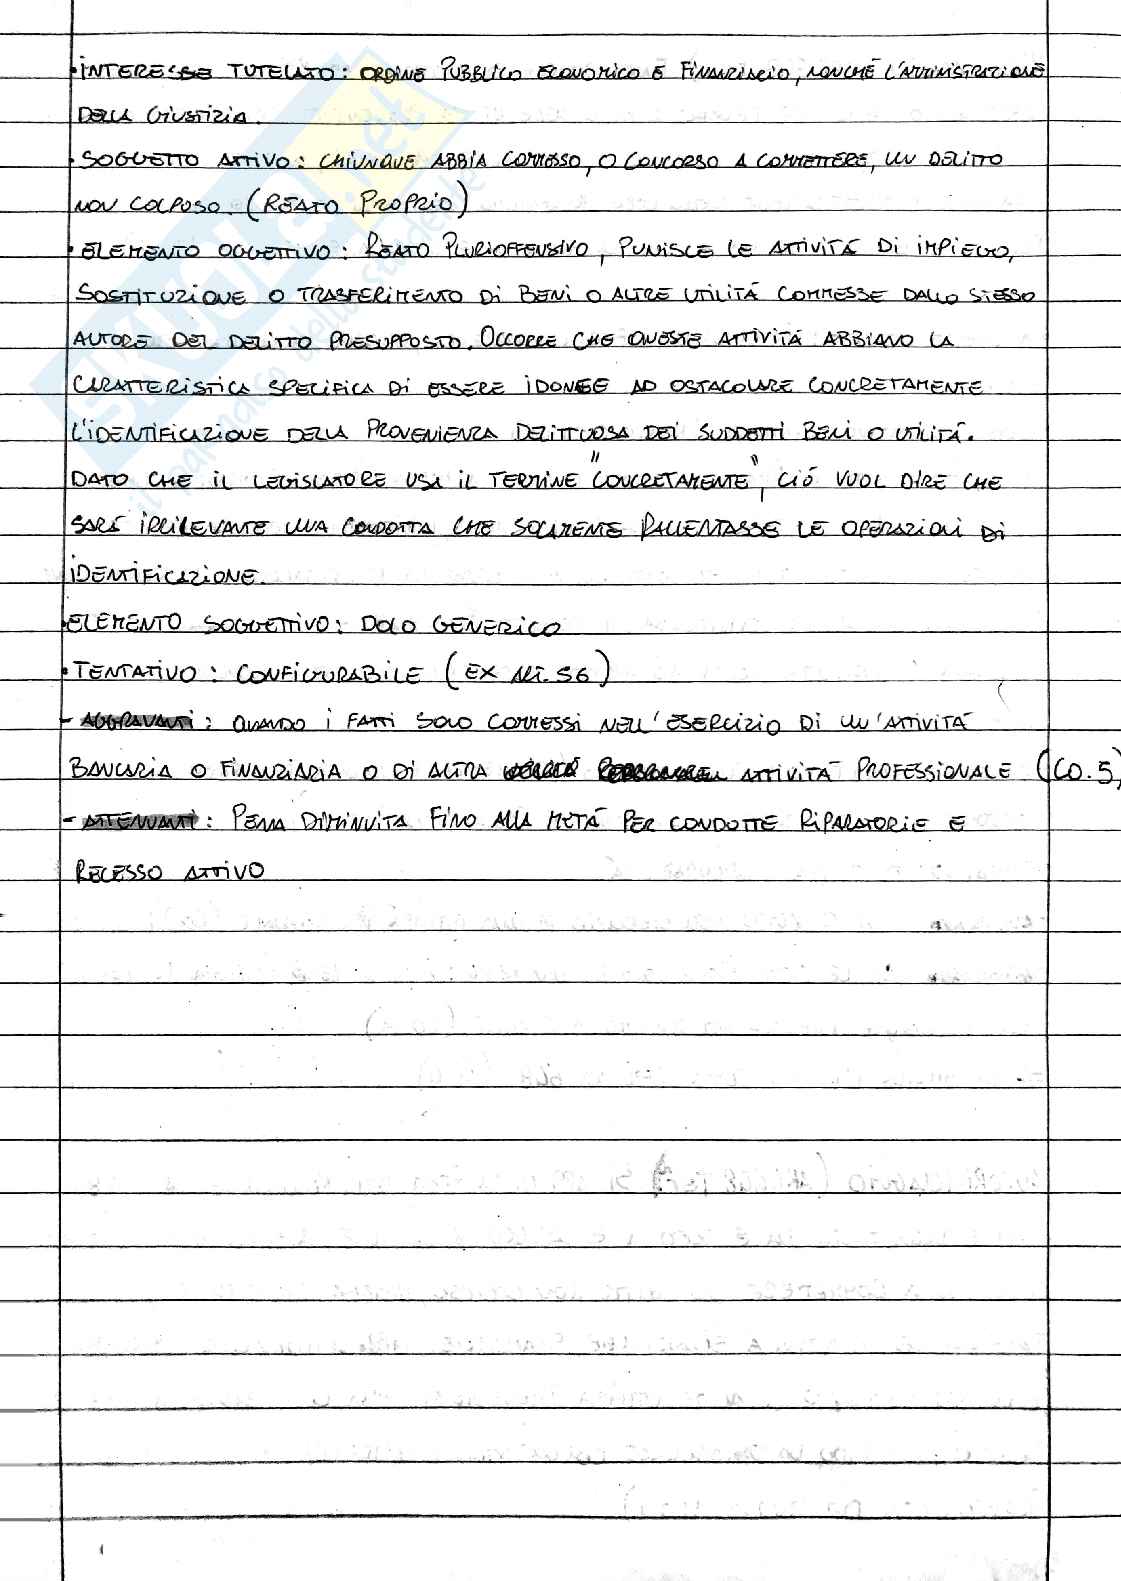 • INTERESSE TUTELATO: ORDINE PUBBLICO ECONOMICO E FINANZIARIO, NONCHÉ L'AMMINISTRAZIONE
DELLA GIUSTIZIA.
• SOGGETTO ATTIVO: CHIUNQUE ABBIA COMMESSO, O CONCORSO A COMMETTERE, UN DELITTO
NON COLPOSO. (REATO PROPRIO)
• ELEMENTO OGGETTIVO: REATO PLURIOFFENSIVO, PUNISCE LE ATTIVITÁ DI IMPIEGO,
SOSTITUZIONE O TRASFERIMENTO DI BENI O ALTRE UTILITÁ COMMESSE DALLO STESSO
AUTORE DEL DELITTO PRESUPPOSTO. OCCORRE CHE QUESTE ATTIVITÁ ABBIANO LA
CARATTERISTICA SPECIFICA DI ESSERE IDONEE AD OSTACOLARE CONCRETAMENTE
L'IDENTIFICAZIONE DELLA PROVENIENZA DELITTUOSA DEI SUDDETTI BENI O UTILITÁ.
DATO CHE IL LEGISLATORE USA IL TERMINE "CONCRETAMENTE", CIÓ VUOL DIRE CHE
SARÁ IRRILEVANTE UNA CONDOTTA CHE SOLAMENTE RALLENTASSE LE OPERAZIONI DI
IDENTIFICAZIONE.
• ELEMENTO SOGGETTIVO: DOLO GENERICO
• TENTATIVO: CONFIGURABILE (EX ART. 56)
- AGGRAVANTI: QUANDO I FATTI SOLO COMMESSI NELL'ESERCIZIO DI UN'ATTIVITÁ
BANCARIA O FINANZIARIA O DI ALTRA ATTIVITÁ PROFESSIONALE (CO. 5)
- ATTENUANTI: PENA DIMINUITA FINO ALLA METÁ PER CONDOTTE RIPARATORIE E
RECESSO ATTIVO
SKUOLA.net
il paradiso dello studente